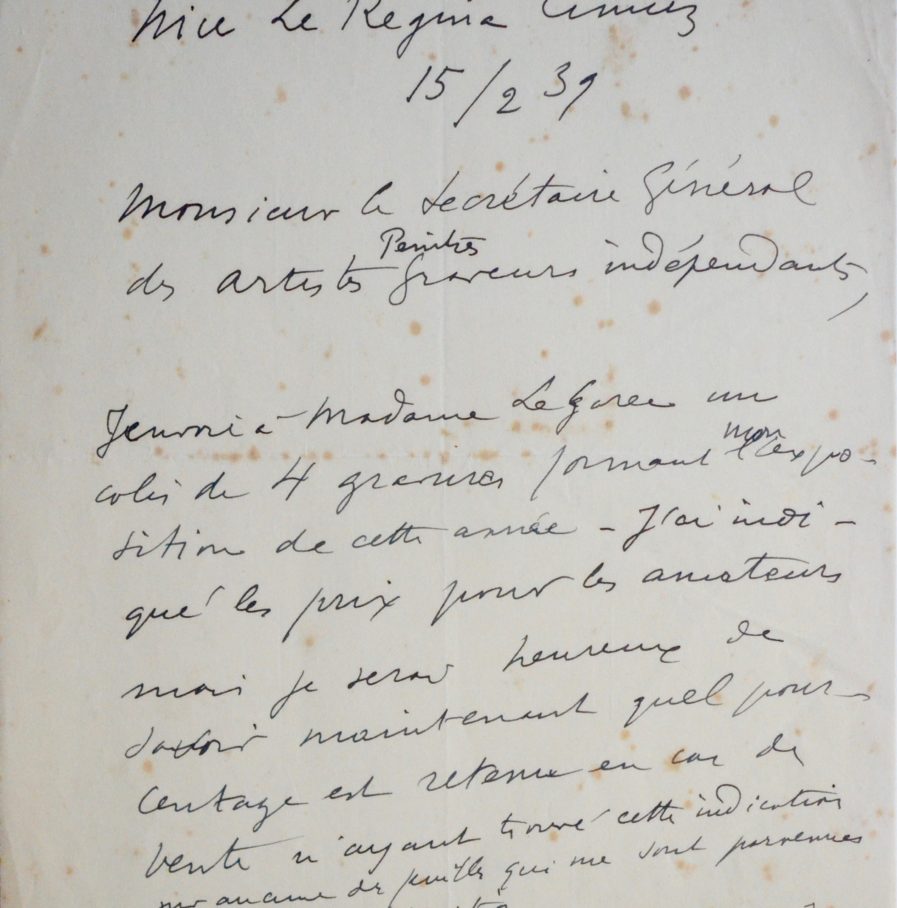 Nice Le Regina Cimiez
15/2 39
Monsieur le Secrétaire Général
Peintres
des artistes Graveurs indépendants,
J'envoie à Madame Le Garrec un
mon
colis de 4 gravures formant l'expo-
sition de cette année - J'ai indi-
qué les prix pour les amateurs
mais je serais heureux de
savoir maintenant quel pour-
centage est retenu en cas de
vente n'ayant trouvé cette indication
sur aucune des feuilles qui me sont parvenues